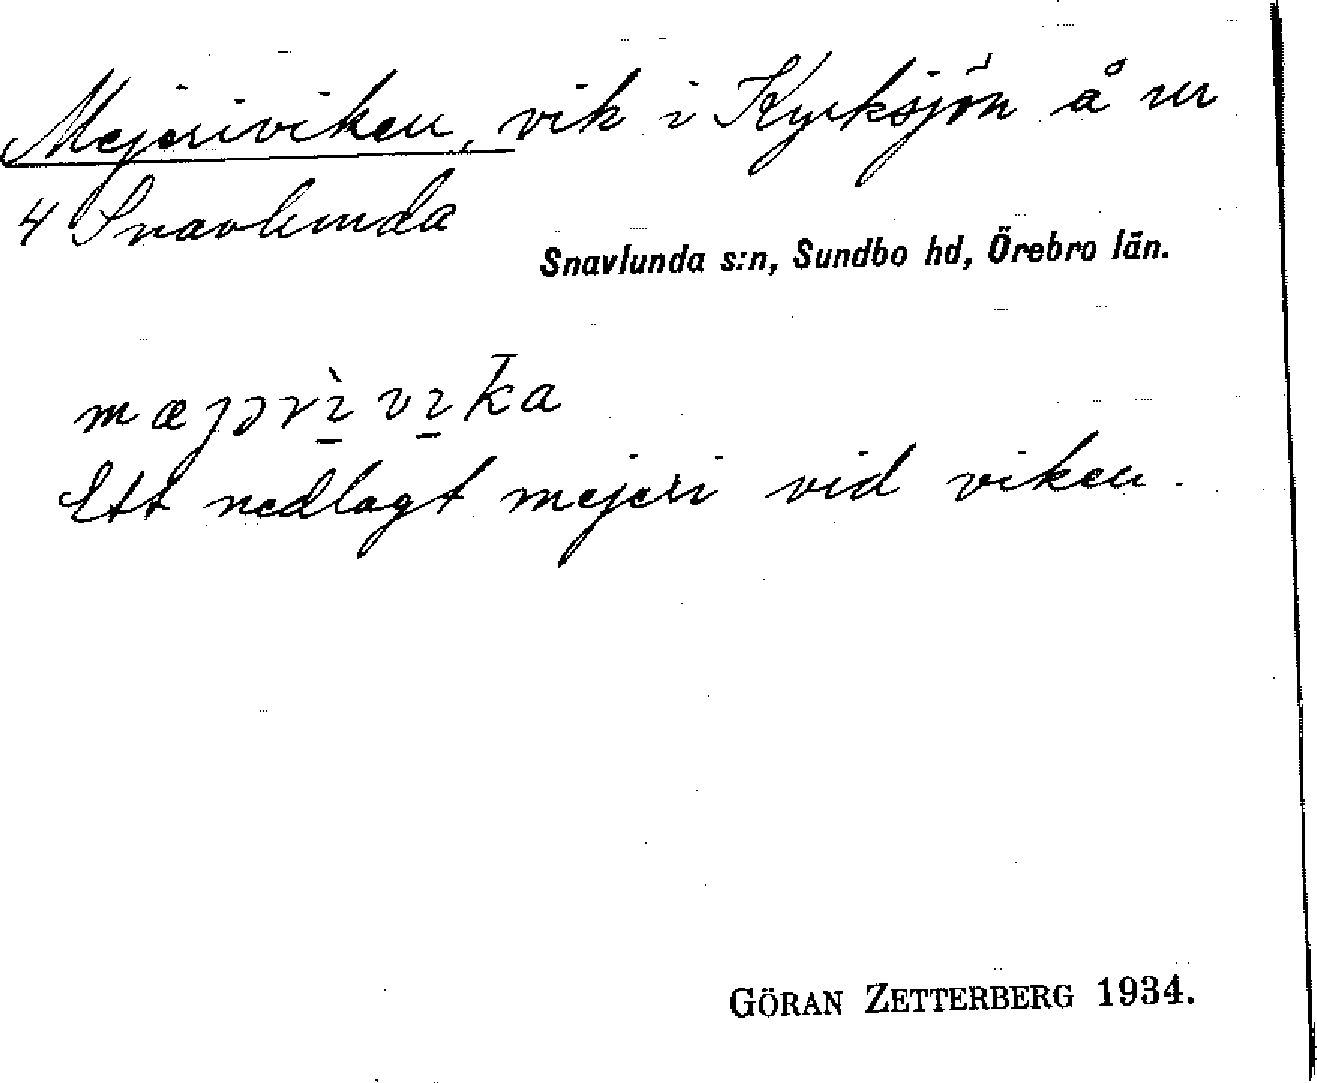 Mejeriviken, vik i Kyrksjön å nr
4 Snavlunda
Snavlunda s:n, Sundbo hd, Örebro län.
mæjərì̱vi̱ka
Ett nedlagt mejeri vid viken.
GÖRAN ZETTERBERG 1934.